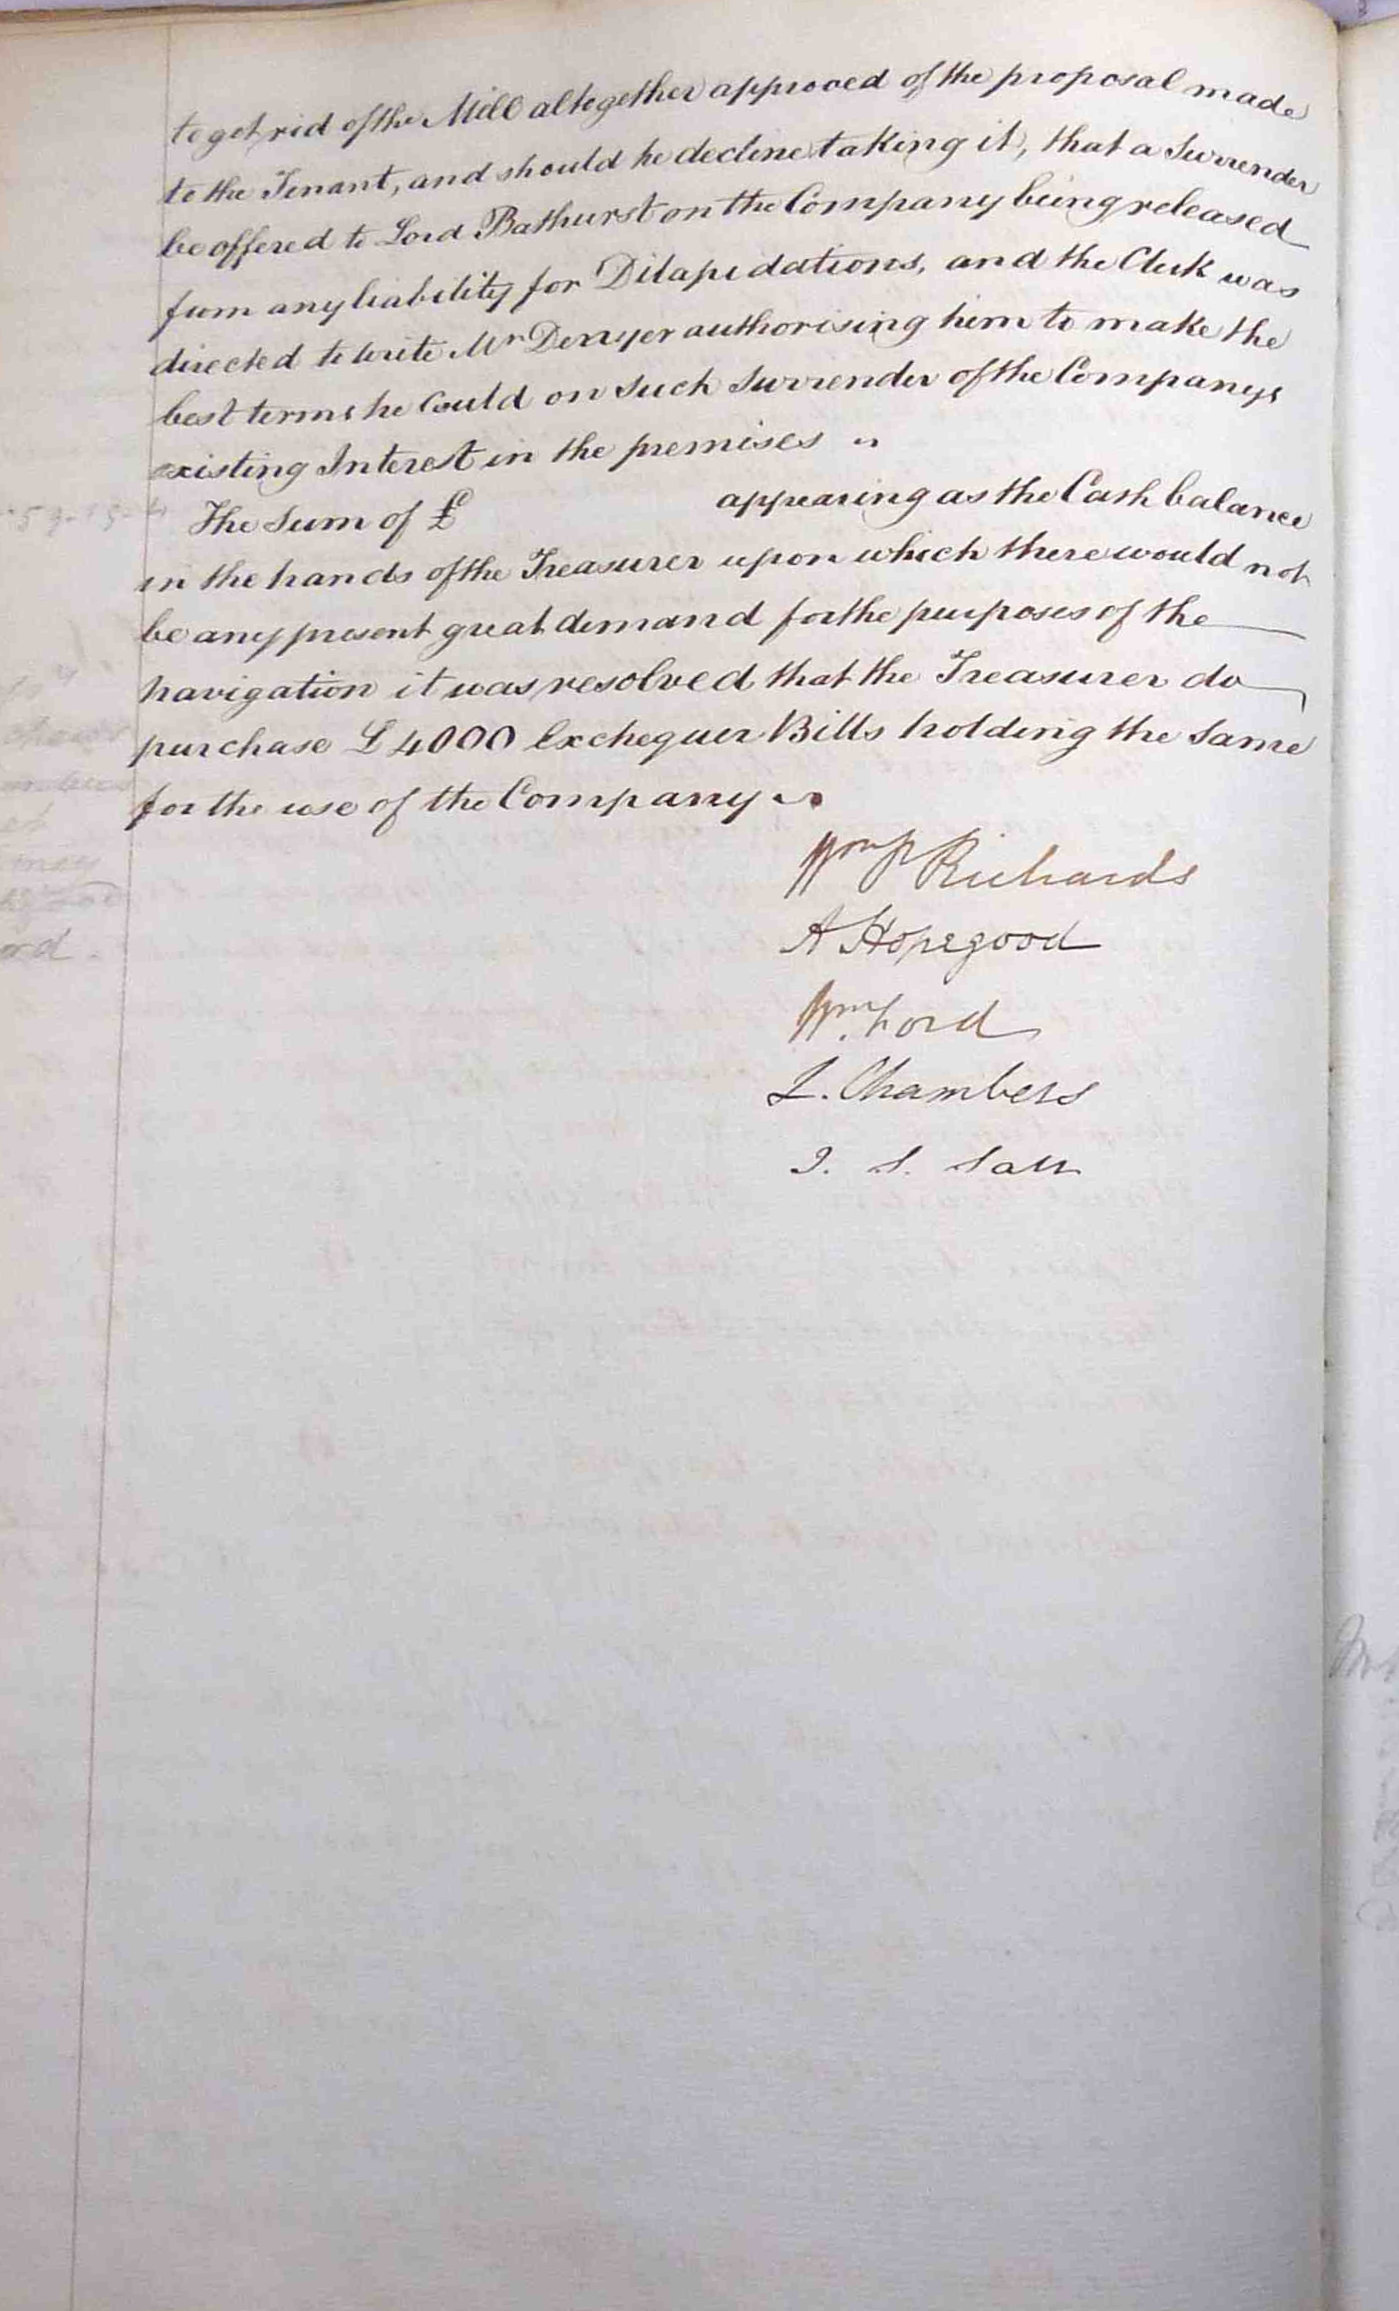 to get rid of the Mill altogether approved of the proposal made
to the Tenant, and should he decline taking it, that a Surrender
be offered to Lord Bathurst on the Company being released
from any liability for Dilapidations, and the Clerk was
directed to write Mr Denyer authorising him to make the
best terms he Could on such Surrender of the Companys
existing Interest in the premises
The Sum of £ appearing as the Cash balance
in the hands of the Treasurer upon which there would not
be any present great demand for the purposes of the
navigation it was resolved that the Treasurer do
purchase £4000 Exchequer Bills holding the Same
for the use of the Company
Wm P Richards
A Hopegood
Wm. Ford
L. Chambers
J. S. Salt